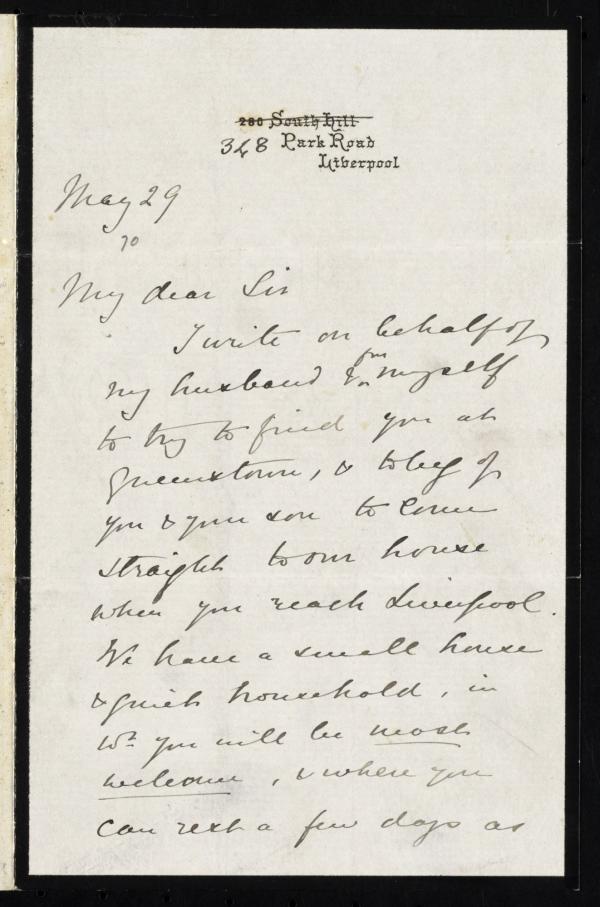 280 South Hill
348 Park Road
Liverpool
May 29
70
My dear Sir
I write on behalf of
my husband & for myself
to try to find you at
Queenstown, & to beg of
you & your son to come
straight to our house
when you reach Liverpool.
We have a small house
& quiet household, in
wh you will be most
welcome, & where you
can rest a few days as